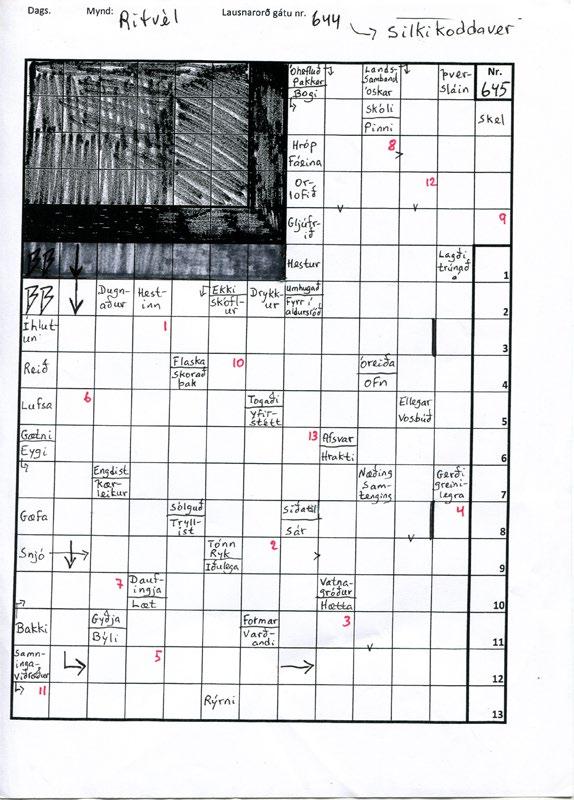 Dags. Mynd: Ritvél Lausnarorð gátu nr. 644 → Silkikoddaver
Óhefluð
Pakkar
Bogi
Lands-
Samband
Óskar
Skóli
Pinni
Þver-
sláin
Nr.
645
Skel
Hróp
Fáeina
8
Or-
lofið
12
Gljúfr-
ið
9
Hestur
Lagði
trúnað
á
1
BB
BB
Dugn-
aður
Hest-
inn
Ekki
Skófl-
ur
Drykk-
ur
umhugað
Fyrr í
aldursröð
2
Íhlut-
un
1
3
Reið
Flaska
Skorað
þak
10
Óreiða
Ofn
4
Lufsa
6
Togaði
Yfir-
stétt
Ellegar
Vosbúð
5
Gætni
Eygi
13
Afsvar
Hrakti
6
Engdist
Kær-
leikur
Næðing
Sam-
tenging
Gerði
greini-
legra
7
Gæfa
Sólguð
Tryll-
ist
Siðatil
Sár
4
8
Snjó
Tónn
Ryk
Iðulega
2
9
7
Dauf-
ingja
Læt
Vatna-
gróður
Hætta
10
Bakki
Gyðja
Býli
Formar
Varð-
andi
3
11
Samn-
inga-
viðræður
5
12
11
Rýrni
13